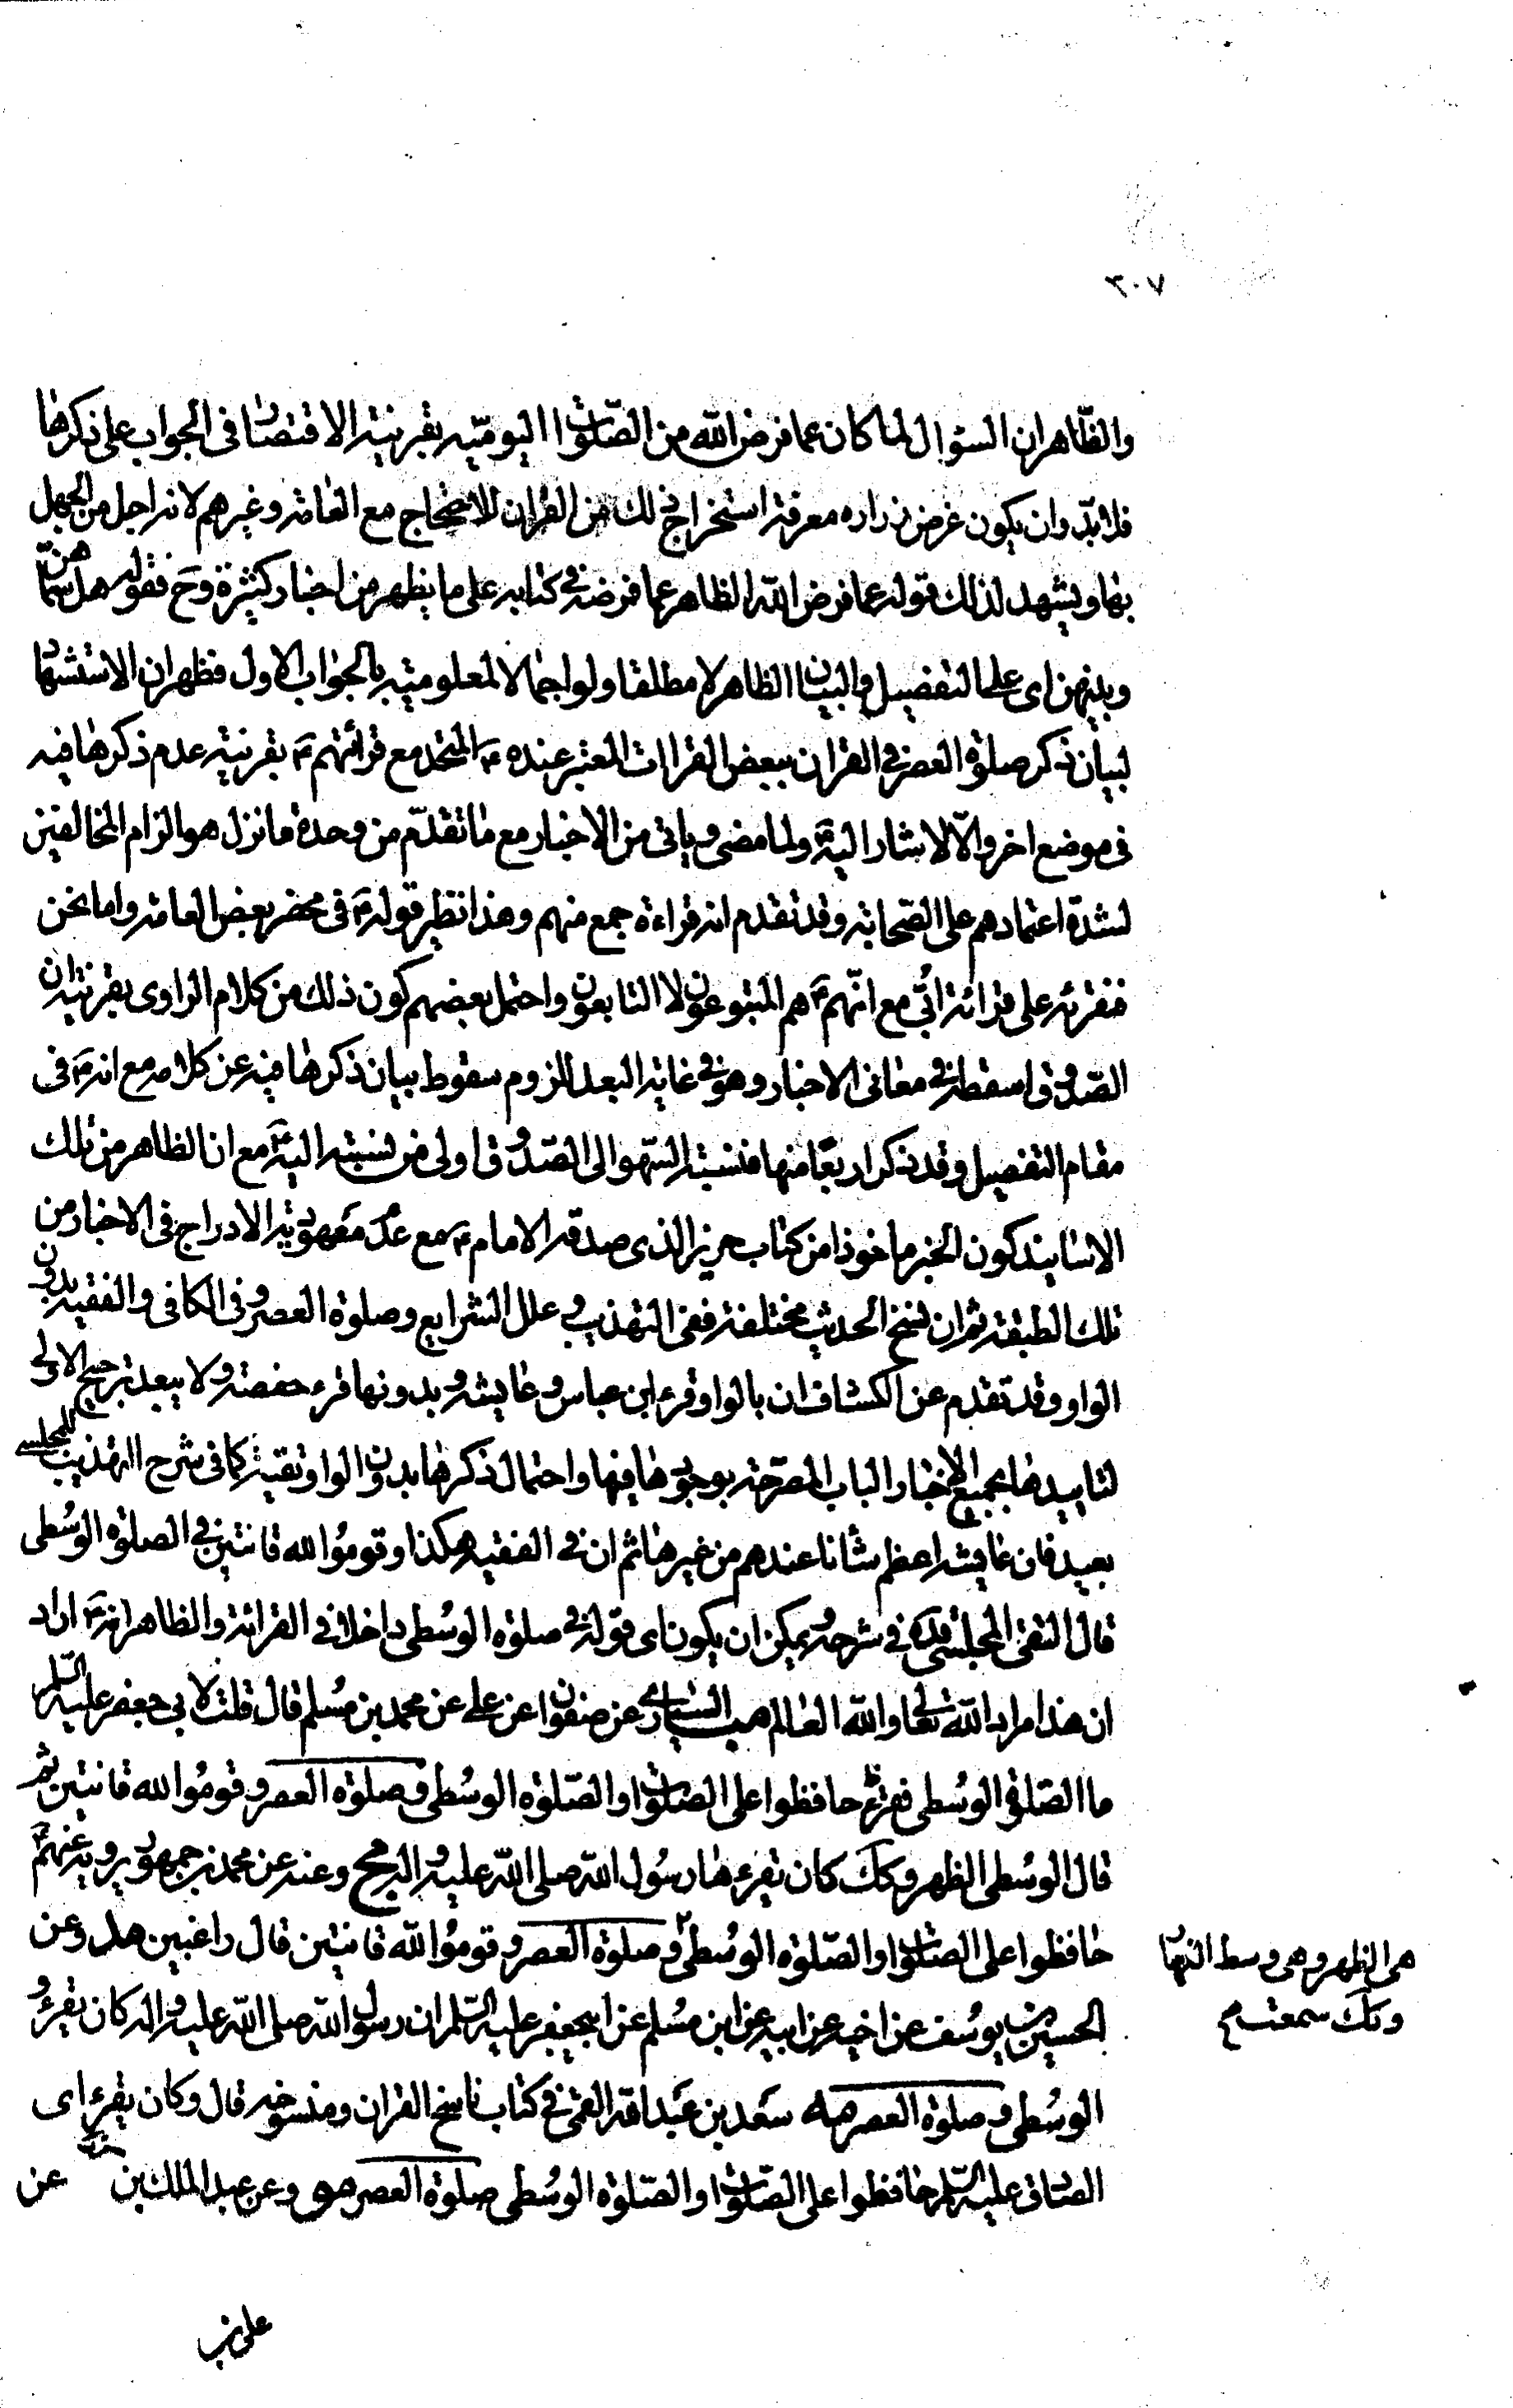 ٣٠٧
والظاهر ان السؤال لما كان عما فرض الله من الصلوات اليومية بقرينة الاقتصار فى الجواب على ذكرها
فلا بد وان يكون غرض زراره معرفة استخراج ذلك من القران للاحتجاج مع العامة وغيرهم لانه اجل من الجهل
بها ويشهد لذلك قوله عما فرض الله الظاهر عما فرضه فى كتابه على ما يظهر من اخبار كثيرة وح فقوله هل سماهن
وبينهن اى على التفصيل والبيان الظاهر لا مطلقا ولو اجمالا لمعلوميته بالجواب الاول فظهر ان الاستشهاد
لبيان ذكر صلوة العصر فى القران ببعض القراات المعتبر عنده ع المتحد مع قرائتهم ع بقرينة عدم ذكرها فيه
فى موضع اخر والا لاشار اليه ع ولما مضى و ياتى من الاخبار مع ما تقدم من وحدة ما نزل هو الزام المخالفين
لشدة اعتمادهم على الصحابة وقد تقدم انه قراءة جمع منهم وهذا نظير قوله ع فى محضر بعض العامة واما نحن
فنقرئه على قرائة ابُى مع انهم ع هم المتبوعون لا التابعون واحتمل بعضهم كون ذلك من كلام الراوى بقرينة ان
الصدوق اسقطه فى معانى الاخبار وهو فى غاية البعد للزوم سقوط بيان ذكرها فيه عن كلامه مع انه ع فى
مقام التفصيل وقد ذكر اربعا منها فنسبة السهو الى الصدوق اولى من نسبته اليه ع مع ان الظاهر من تلك
الاسانيد كون الخبر ماخوذا من كتاب حريز الذى صدقه الامام ع مع عدم معهودية الادراج فى الاخبار من
تلك الطبقة ثم ان نسخ الحديث مختلفة ففى التهذيب و علل الشرايع وصلوة العصر و فى الكافى والفقيه بدون
الواو وقد تقدم عن الكشاف ان بالواو قرء ابن عباس و عايشه و بدونها قرء حفصة ولا يبعد ترجيح الاولى
لتاييدها بجميع الاخبار الباب المصرحة بوجودها فيها واحتمال ذكرها بدون الواو تقية كما فى شرح التهذيب للمجلسى
بعيد فان عايشه اعظم شأنا عندهم من غيرها ثم ان فى الفقيه هكذا وقومُوا لله قانتين فى الصلوة الوسُطى
قال التقى المجلسى قده فى شرحه يمكن ان يكون اى قوله فى صلوة الوسُطى داخلا فى القرائة والظاهر انه ع اراد
ان هذا مراد الله تعالى والله العالم السيارى عن صفوان عن على عن محمد بن مُسلم قال قلت لابى جعفر عليه السلم
ما الصلوة الوسُطى فقرء حافظوا على الصلوات والصلوة الوسُطى وصلوة العصر وقومُوا لله قانتين ثم
قال الوسُطى الظهر وكك كان يقرءها رسُول الله صلى الله عليه واله وعنه عن محمد بن جمهور يرويه عنهم ع
حافظوا على الصلوات والصلوة الوسُطى وصلوة العصر وقومُوا لله قانتين قال راغبين وعن
هى الظهر وهى وسط النهار
وكك سمعته
الحسين بن يوسُف عن اخيه عن ابيه عن ابن مُسلم عن ابيجعفر عليه السلم ان رسول الله صلى الله عليه واله كان يقرء و
الوسُطى وصلوة العصر سعد بن عبد الله القمى فى كتاب ناسخ القران ومنسوخه قال وكان يقرء اى
الصادق عليه السلم حافظوا على الصلوات والصلوة الوسُطى صلوة العصر وعن عبد الملك بن عن
على بن